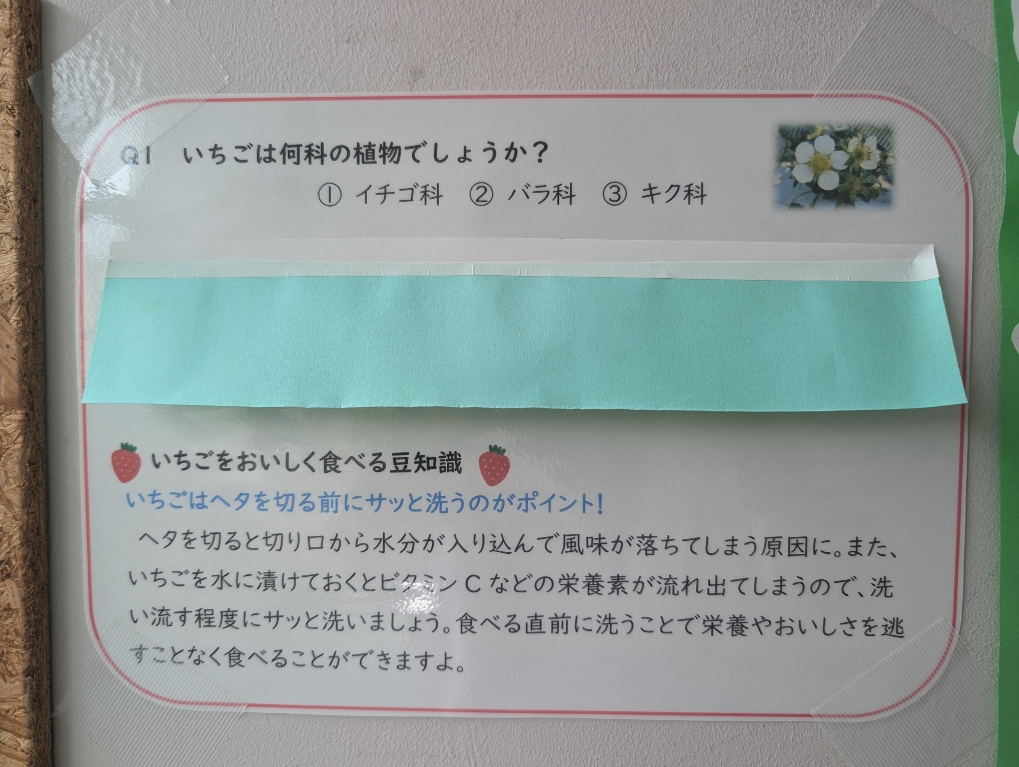 Q1 いちごは何科の植物でしょうか?
① イチゴ科 ② バラ科 ③ キク科
いちごをおいしく食べる豆知識
いちごはヘタを切る前にサッと洗うのがポイント!
ヘタを切ると切り口から水分が入り込んで風味が落ちてしまう原因に。また、
いちごを水に漬けておくとビタミン C などの栄養素が流れ出てしまうので、洗
い流す程度にサッと洗いましょう。食べる直前に洗うことで栄養やおいしさを逃
すことなく食べることができますよ。